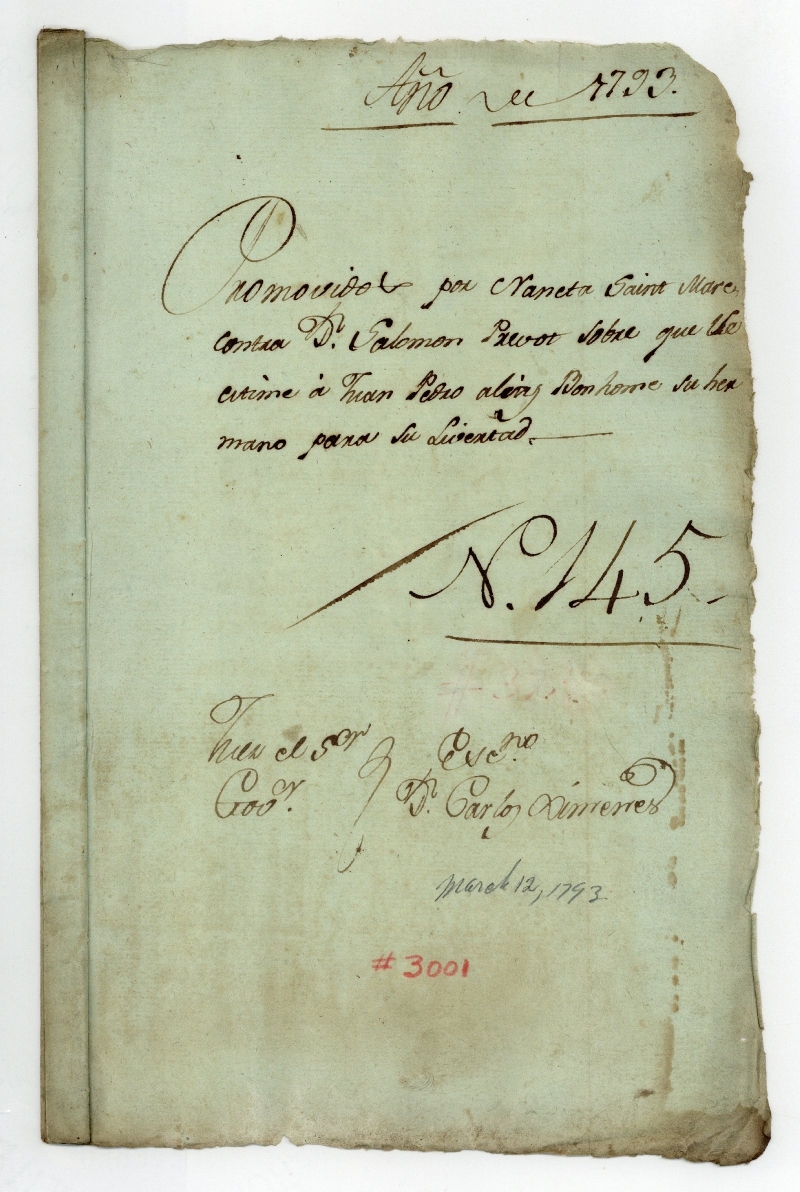 Año de 1793.
Promovidos por Naneta Saint Marc
contra Dn. Salomon Prevot sobre que Ve
estime à Juan Pedro alias Bonhome su her
mano para su Livertad.
No. 145
Juez el Sor
Govr.
Escno.
Dn. Carlos Ximenes
March 12, 1793
# 3001